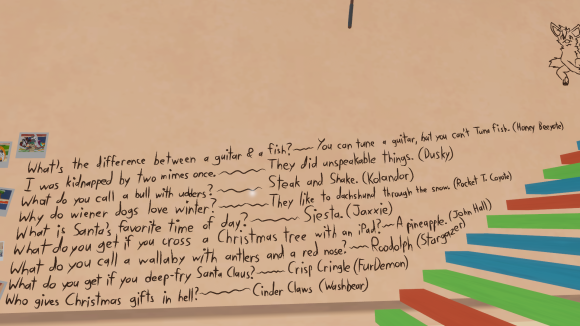 What's the difference between a guitar & a fish? You can tune a guitar, but you can't Tuna fish. (Honey Beeyote)
I was kidnapped by two mimes once. They did unspeakable things. (Dusky)
What do you call a bull with udders? Steak and Shake. (Kolandor)
Why do wiener dogs love winter? They like to dachshund through the snow. (Pocket T. Coyote)
What is Santa's favorite time of day? Siesta. (Jaxxie)
What do you get if you cross a Christmas tree with an iPad? A pineapple. (John Hall)
What do you call a wallaby with antlers and a red nose? Roodolph (Stargazer)
What do you get if you deep-fry Santa Claus? Crisp Cringle (FurDemon)
Who gives Christmas gifts in hell? Cinder Claws (Washbear)